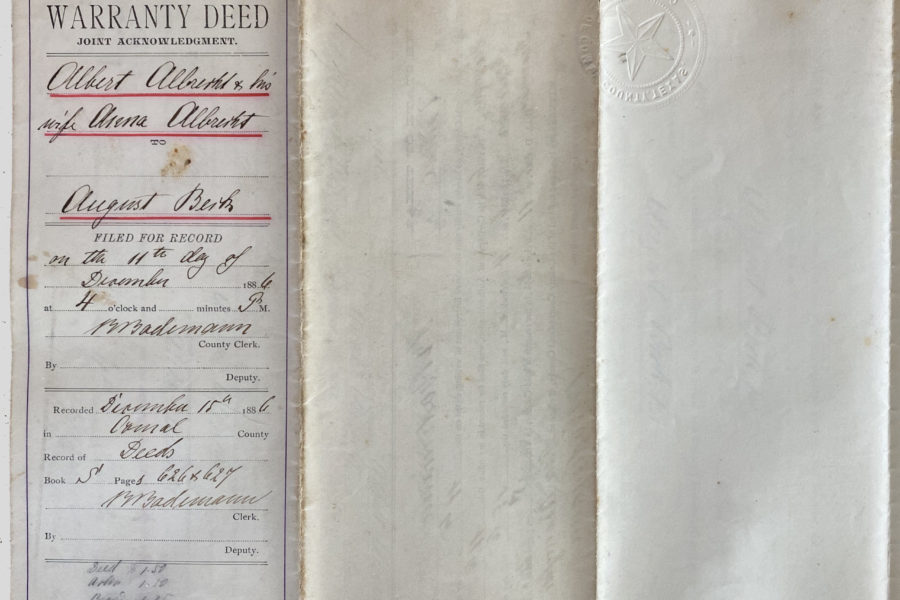 WARRANTY DEED
JOINT ACKNOWLEDGMENT.
Albert Albrecht & his
wife Anna Albrecht
TO
August
FILED FOR RECORD
on the 11th day of
December 1886
at 4 o'clock and minutes P M.
County Clerk.
By
Deputy.
Recorded December 15th 1886
in Comal County
Record of Deeds
Book S Pages 626 & 627
Clerk.
By
Deputy.
Deed $1.50